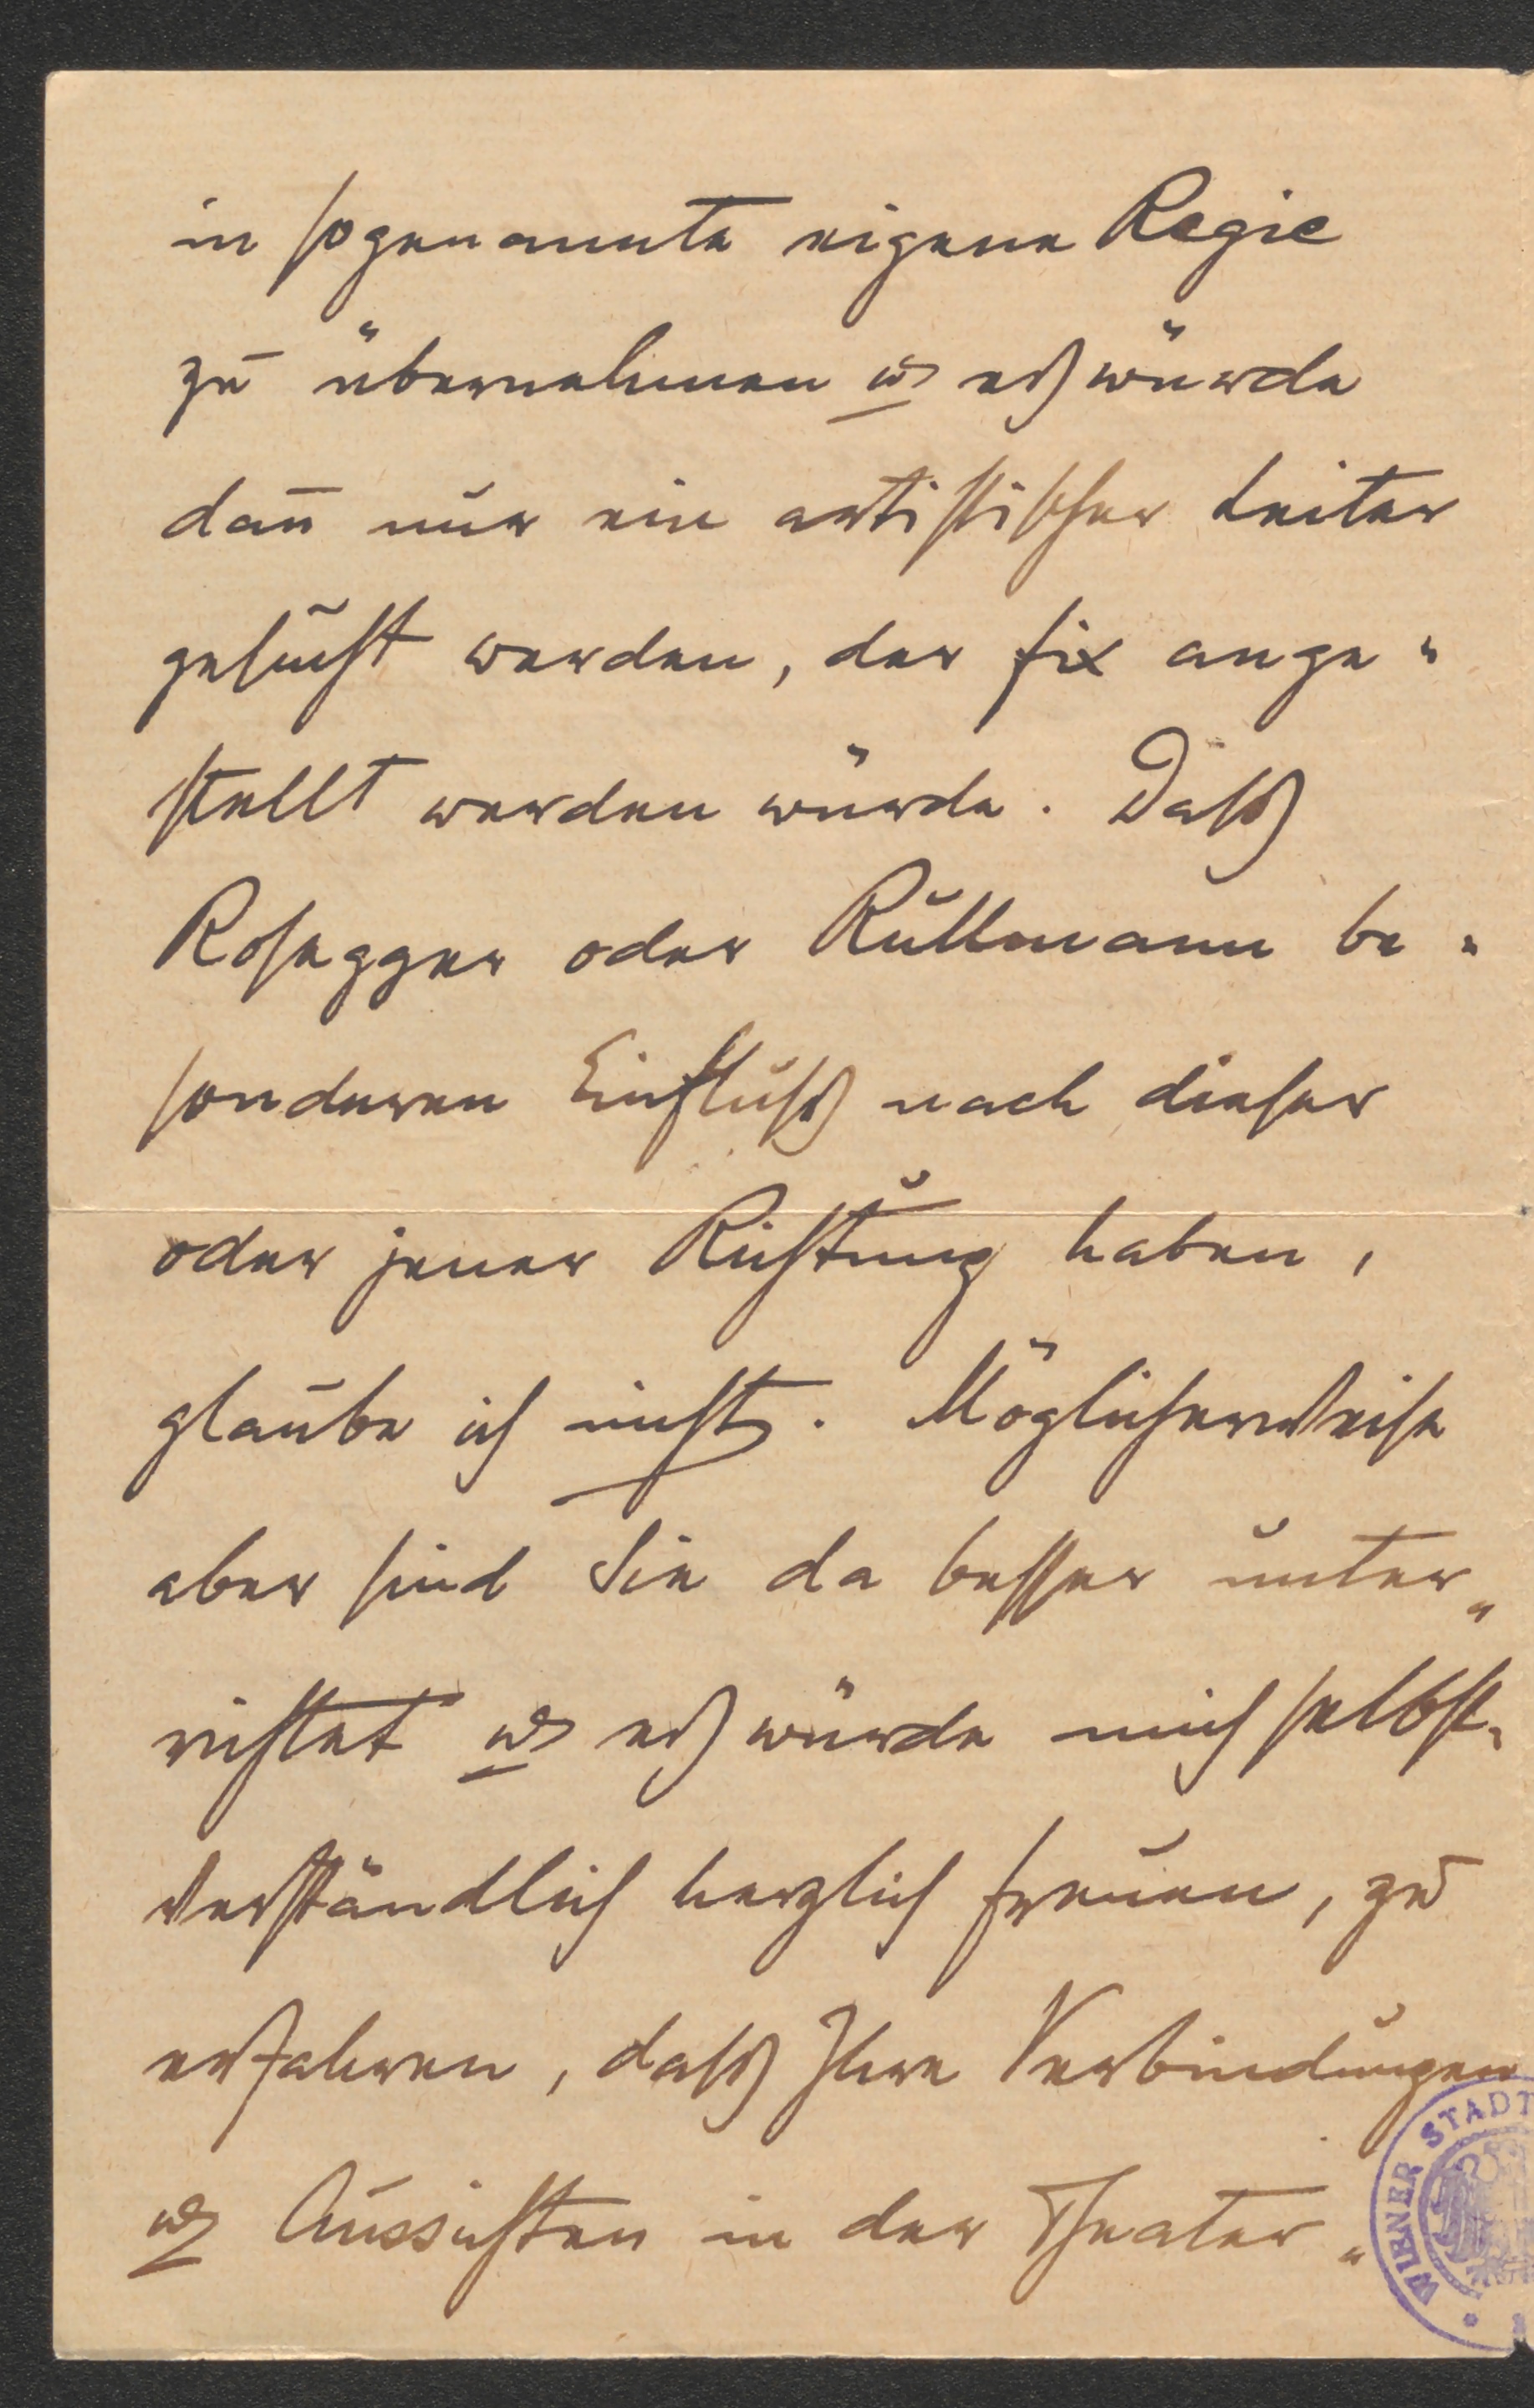 in sogenannte eigene Regie
zu übernehmen u. es würde
dan̄ nur ein artistischer Leiter
gesucht werden, der fix ange„
stellt werden würde. Daß
Rosegger oder Rullmann be„
sonderen Einfluß nach dieser
oder jener Richtung haben,
glaube ich nicht. Möglicherweise
aber sind Sie da besser unter„
richtet u. es würde mich selbst„
verständlich herzlich freuen, zu
erfahren, daß Ihre Verbindungen
u. Aussichten in der Theater„
WIENER STADT